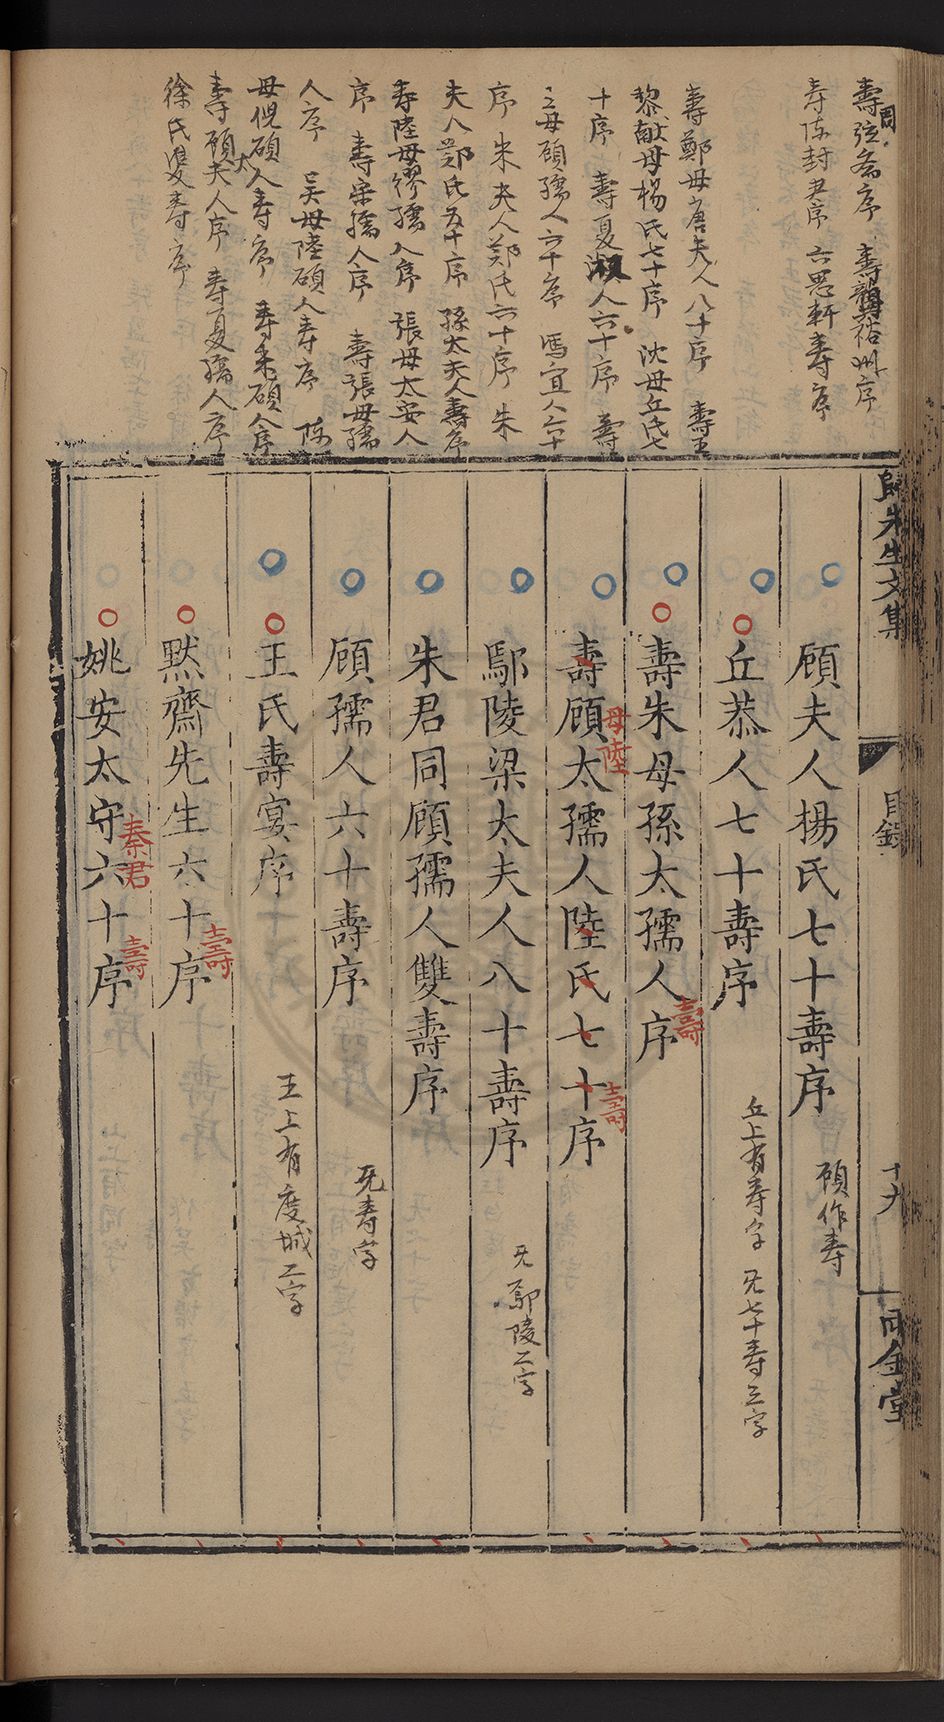 壽周弦齋序 壽
祐州序
壽陈封君序 六思軒壽序
壽鄭母唐夫人八十序 壽王
黎献母楊氏七十序 沈母丘氏七
十序 壽夏淑人六十序 壽
之母顧孺人六十序 馮宜人六十
序 朱夫人鄭氏六十序 朱
夫人鄭氏五十序 孫太夫人壽序
壽陸母繆孺人序 張母太安人
序 壽宋孺人序 壽張母孺
人序 吴母陸碩人壽序 陈
母倪碩人壽序 壽朱碩人序
壽顧太夫人序 壽夏孺人序
徐氏雙壽序
歸先生文集
目錄
十九
雨金堂
顧夫人楊氏七十壽序 顧作壽
丘恭人七十壽序 丘上有壽字 旡七十壽三字
壽朱母孫太孺人序
壽
壽顧太孺人陸氏七十序
母陸
壽
鄢陵梁太夫人八十壽序 旡鄢陵二字
朱君同顧孺人雙壽序
顧孺人六十壽序 旡壽字
王氏壽宴序 王上有度城二字
默齋先生六十序
壽
姚安太守六十序
秦君
壽